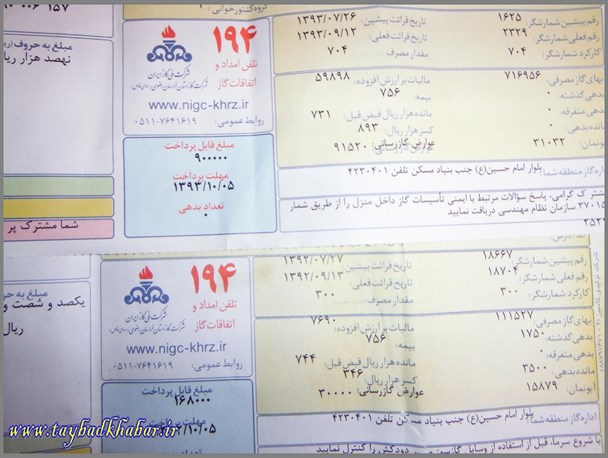 گروه کنتورخوانی
۱۵۷
مبلغ به حروف
نهصد هزار ریال
۱۹۴
تلفن امداد و
اتفاقات گاز
شرکت ملی گاز ایران
شرکت گاز استان خراسان رضوی
www.nigc-khrz.ir
روابط عمومی: ۷۶۴۱۶۱۹-۰۵۱۱
مبلغ قابل پرداخت
۹۰۰۰۰۰
مهلت پرداخت
۱۳۹۳/۱۰/۰۵
تعداد بدهی
۰
شما مشترک پر
رقم پیشین شمارشگر: ۱۶۲۵
رقم فعلی شمارشگر: ۲۳۲۹
کارکرد شمارشگر: ۷۰۴
تاریخ قرائت پیشین: ۱۳۹۳/۰۷/۲۶
تاریخ قرائت فعلی: ۱۳۹۳/۰۹/۱۲
مقدار مصرف: ۷۰۴
بهای گاز مصرفی: ۷۱۶۹۵۶
بدهی گذشته: ۰
بدهی متفرقه: ۰
مانده بدهی: ۰
آبونمان: ۳۱۰۳۲
مالیات بر ارزش افزوده: ۵۹۸۹۸
بیمه: ۷۵۶
مانده هزار ریال قبض قبل: ۷۳۱
کسر هزار ریال: ۸۹۳
عوارض گازرسانی: ۹۱۵۲۰
اداره گاز منطقه شما: بلوار امام حسین(ع) جنب بنیاد مسکن تلفن ۴۲۳۰۴۰۱
مشترک گرامی، پاسخ سؤالات مرتبط با ایمنی تأسیسات گاز داخل منزل را از طریق شما
۳۷۰۱۵ سازمان نظام مهندسی دریافت نمایید
مبلغ به حرو
یکصد و شصت و
ریال
۱۹۴
تلفن امداد و
اتفاقات گاز
شرکت ملی گاز ایران
شرکت گاز استان خراسان رضوی
www.nigc-khrz.ir
روابط عمومی: ۷۶۴۱۶۱۹-۰۵۱۱
مبلغ قابل پرداخت
۱۶۸۰۰۰
/۱۰/۰۵
رقم پیشین شمارشگر: ۱۸۶۶۷
رقم فعلی شمارشگر: ۱۸۷۰۴
کارکرد شمارشگر: ۳۰۰
تاریخ قرائت پیشین: ۱۳۹۲/۰۷/۲۷
تاریخ قرائت فعلی: ۱۳۹۲/۰۹/۱۳
مقدار مصرف: ۳۰۰
بهای گاز مصرفی: ۱۱۱۵۲۷
بدهی گذشته: ۱۷۵۰
بدهی متفرقه: ۰
مانده بدهی: ۳۵۰۰
آبونمان: ۱۵۸۷۹
مالیات بر ارزش افزوده: ۷۶۹۰
بیمه: ۷۵۶
مانده هزار ریال قبض قبل: ۷۴۴
کسر هزار ریال: ۳۴۶
عوارض گازرسانی: ۳۰۰۰۰
اداره گاز منطقه شما: بلوار امام حسین(ع) جنب بنیاد مسکن تلفن ۴۲۳۰۴۰۱
با شروع سرما، قبل از استفاده از وسایل گازسوز، دودکش را کنترل نمایید
www.taybadkhabar.ir